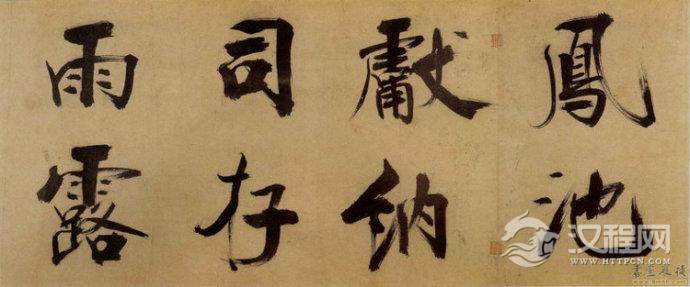 鳳池
獻納
司存
雨露
汉程网
WWW.HTTPCN.COM